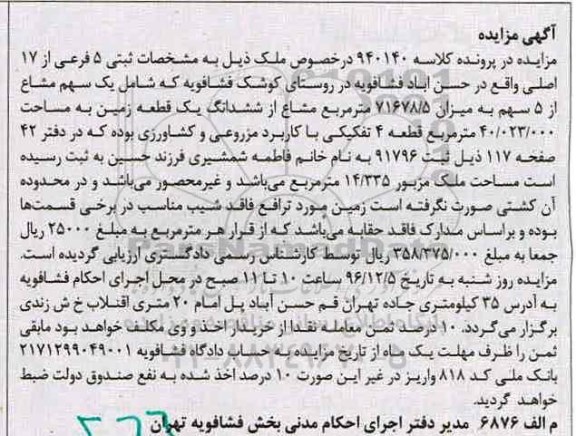 آگهی مزایده
مزایده در پرونده کلاسه ۹۴۰۱۴۰ درخصوص ملک ذیل به مشخصات ثبتی ۵ فرعی از ۱۷
اصلی واقع در حسن اباد فشافویه در روستای کوشک فشافویه که شامل یک سهم مشاع
از ۵ سهم به میزان ۷۱۶۷۸/۵ مترمربع مشاع از ششدانگ یک قطعه زمین به مساحت
۴۰/۰۲۳/۰۰۰ مترمربع قطعه ۴ تفکیکی با کاربرد مزروعی و کشاورزی بوده که در دفتر ۴۲
صفحه ۱۱۷ ذیل ثبت ۹۱۷۹۶ به نام خانم فاطمه شمشیری فرزند حسین به ثبت رسیده
است مساحت ملک مزبور ۱۴/۳۳۵ مترمربع می‌باشد و غیرمحصور می‌باشد و در محدوده
آن کشتی صورت نگرفته است زمین مورد ترافع فاقد شیب مناسب در برخی قسمت‌ها
بوده و براساس مدارک فاقد حقابه می‌باشد که از قرار هر مترمربع به مبلغ ۲۵۰۰۰ ریال
جمعا به مبلغ ۳۵۸/۳۷۵/۰۰۰ ریال توسط کارشناس رسمی دادگستری ارزیابی گردیده است.
مزایده روز شنبه به تاریخ ۹۶/۱۲/۵ ساعت ۱۰ تا ۱۱ صبح در محل اجرای احکام فشافویه
به آدرس ۳۵ کیلومتری جاده تهران قم حسن آباد پل امام ۲۰ متری انقلاب خ ش زندی
برگزار می‌گردد. ۱۰ درصد ثمن معامله نقدا از خریدار اخذ و وی مکلف خواهد بود مابقی
ثمن را ظرف مهلت یک ماه از تاریخ مزایده به حساب دادگاه فشافویه ۲۱۷۱۲۹۹۰۴۹۰۰۱
بانک ملی کد ۸۱۸ واریز در غیر این صورت ۱۰ درصد اخذ شده به نفع صندوق دولت ضبط
خواهد گردید.
م الف ۶۸۷۶ مدیر دفتر اجرای احکام مدنی بخش فشافویه تهران